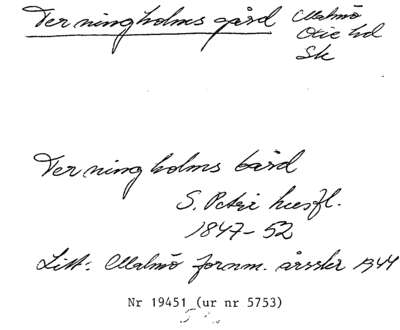 Terningholms gård Malmö
Oxie hd
Sk
Terningholms bård
S. Petri husfl.
1847-52
Litt: Malmö fornm. årsskr 1944
Nr 19451 (ur nr 5753)